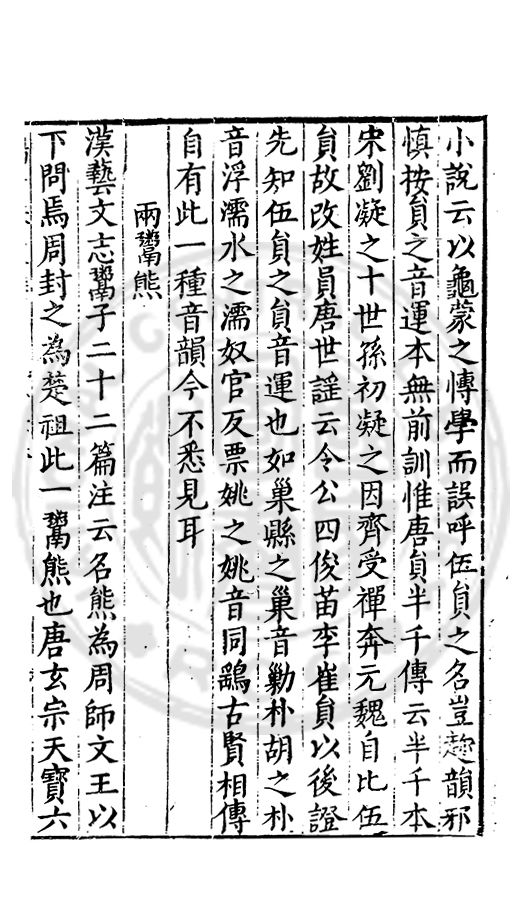 小說云以龜蒙之博學而誤呼伍貟之名豈趂韻邪
慎按貟之音運本無前訓惟唐貟半千傳云半千本
宋劉凝之十世孫初凝之因齊受禪奔元魏自比伍
貟故改姓員唐世謡云令公四俊苗李崔貟以後證
先知伍貟之貟音運也如巢縣之巢音勦朴胡之朴
音浮濡水之濡奴官反票姚之姚音同鷂古賢相傳
自有此一種音韻今不悉見耳
兩鬻熊
漢藝文志鬻子二十二篇注云名熊為周師文王以
下問焉周封之為楚祖此一鬻熊也唐玄宗天寶六